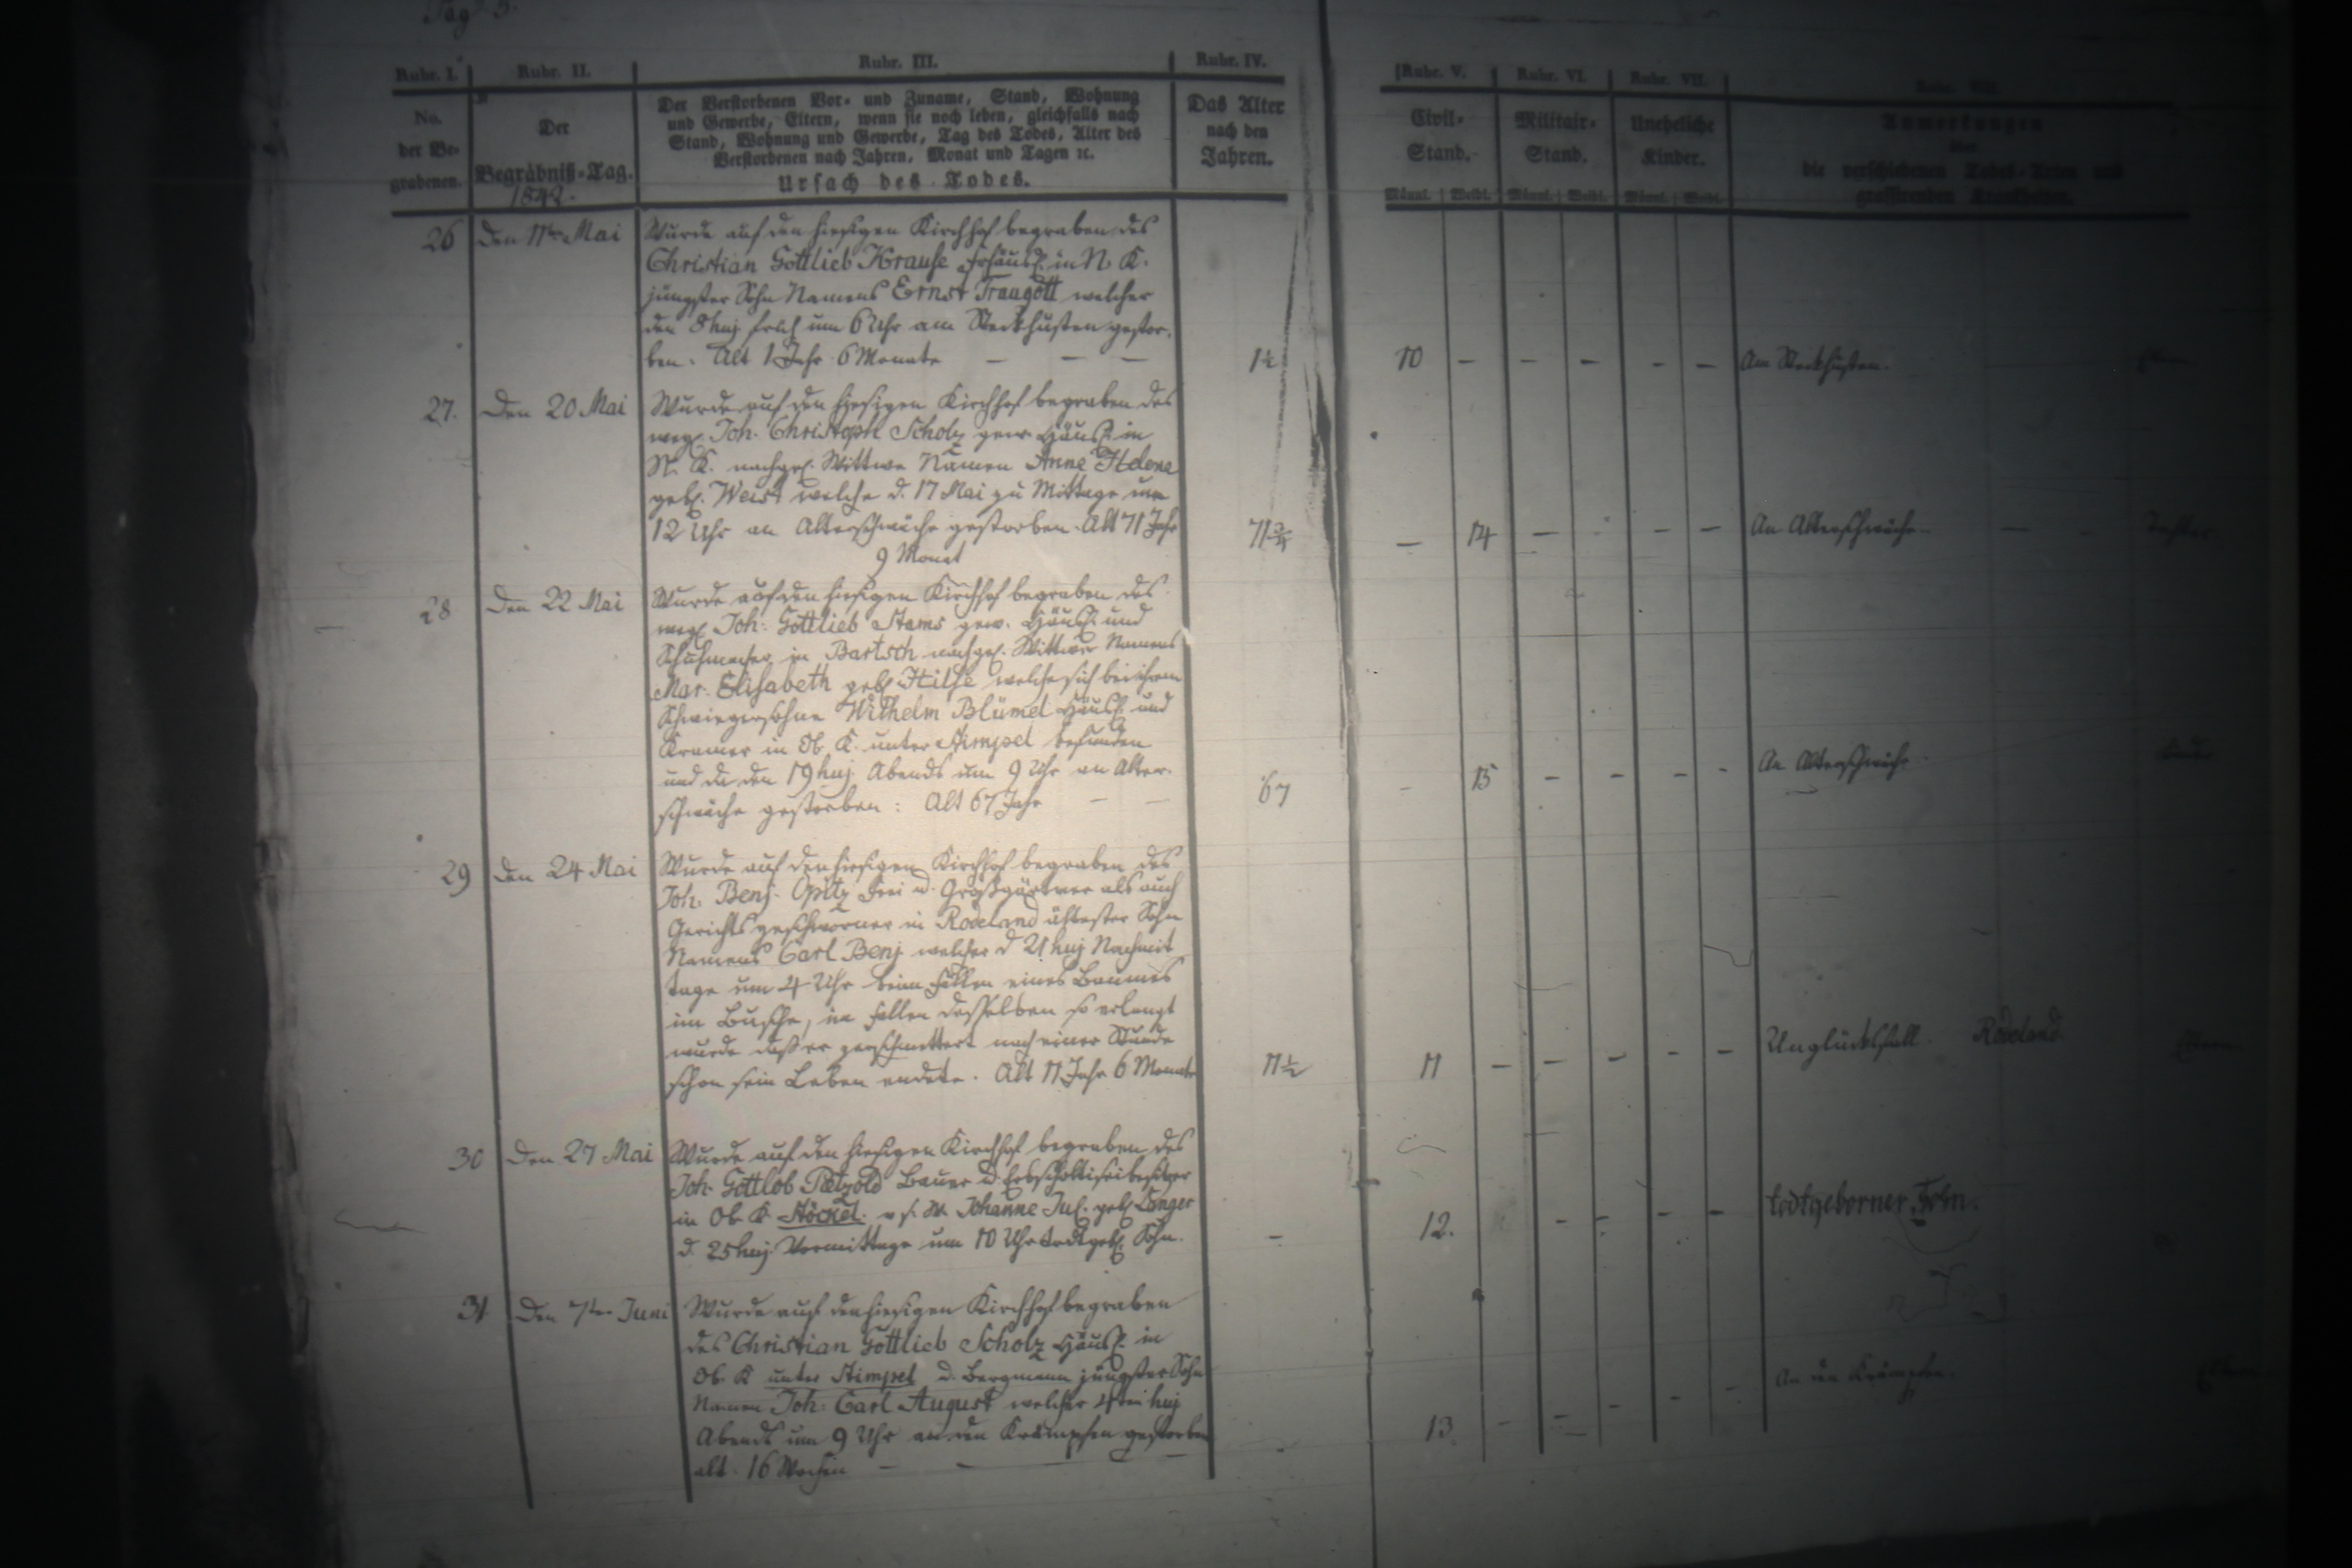 Pag. 5.
Rubr. I. Rubr. II. Rubr. III. Rubr. IV. Rubr. V. Rubr. VI. Rubr. VII. Rubr. VIII.
No. der Be-grabenen.
Der Begräbniß-Tag.
1842.
Der Verstorbenen Vor- und Zuname, Stand, Wohnung
und Gewerbe, Eltern, wenn sie noch leben, gleichfalls nach
Stand, Wohnung und Gewerbe, Tag des Todes, Alter des
Verstorbenen nach Jahren, Monat und Tagen ꝛc.
Ursach des Todes.
Das Alter nach den Jahren.
Civil-Stand.
Militair-Stand.
Uneheliche Kinder.
Männl. Weibl. Männl. Weibl. Männl. Weibl.
Anmerkungen
über
die verschiedenen Todes-Arten und
grassirenden Krankheiten.
26 Den 11ten Mai Wurde auf den hiesigen Kirchhof begraben des
Christian Gottlieb Krause Frhäusl. in N. K.
jüngster Sohn Namens Ernst Traugott welcher
den 8 huj früh um 6 Uhr am Steckhusten gestor-
ben. Alt 1 Jahr 6 Monate — — — 1½ 10 — — — — — Am Steckhusten.
27. Den 20 Mai Wurde auf den hiesigen Kirchhof begraben des
weyl. Joh. Christoph Scholz gew. Häusl. in
N. K. nachgel. Wittwe Namen Anne Helene
geb. Weist welche d. 17 Mai zu Mittage um
12 Uhr an Altersschwäche gestorben. Alt 71 Jahr
9 Monat 71¾ — 14 — - — — An Altersschwäche.
28 Den 22 Mai Wurde auf den hiesigen Kirchhof begraben des
weyl. Joh: Gottlieb Stams gew. Häusl. und
Schuhmacher in Bartsch nachgel. Wittwe Namens
Mar. Elisabeth geb. Hilse welche sich bei ihrem
Schwiegersohne Wilhelm Blümel Häusl. und
Kramer in Ob. K. unter Stimpel befunden
und da den 19 huj Abends um 9 Uhr an Alters-
schwäche gestorben: Alt 67 Jahr — — 67 - 15 — — — - An Altersschwäche
29 Den 24 Mai Wurde auf den hiesigen Kirchhof begraben des
Joh. Benj. Opitz Frei u. Großgärtner als auch
Gerichtsgeschworner in Rodeland ältester Sohn
Namens Carl Benj welcher d 21 huj Nachmit
tags um 4 Uhr beim Fällen eines Baumes
im Busche, im Fallen desselben so erlangt
wurde daß er zerschmettert nach einer Stunde
schon sein Leben endete. Alt 11 Jahr 6 Monate 11½ 11 — — — — — Unglücksfall. Rodeland
30 Den 27 Mai Wurde auf den hiesigen Kirchhof begraben des
Joh. Gottlob Pätzold Bauer u. Erbscholtiseibesitzer
in Ob. K Stöckel. u s. W. Johanne Jul. geb. Langer
d. 25 huj. Vormittags um 10 Uhr todtgeb. Sohn. — 12. — — — — todtgeborner Sohn.
31 Den 7ten Juni Wurde auf den hiesigen Kirchhof begraben
des Christian Gottlieb Scholz Häusl. in
Ob. K unter Stimpel d. Bergmann jüngster Sohn
Namen Joh: Carl August welcher 4ten huj
Abends um 9 Uhr an den Krämpfen gestorben
alt. 16 Wochen — — — 13. - — - - - An den Krämpfen.